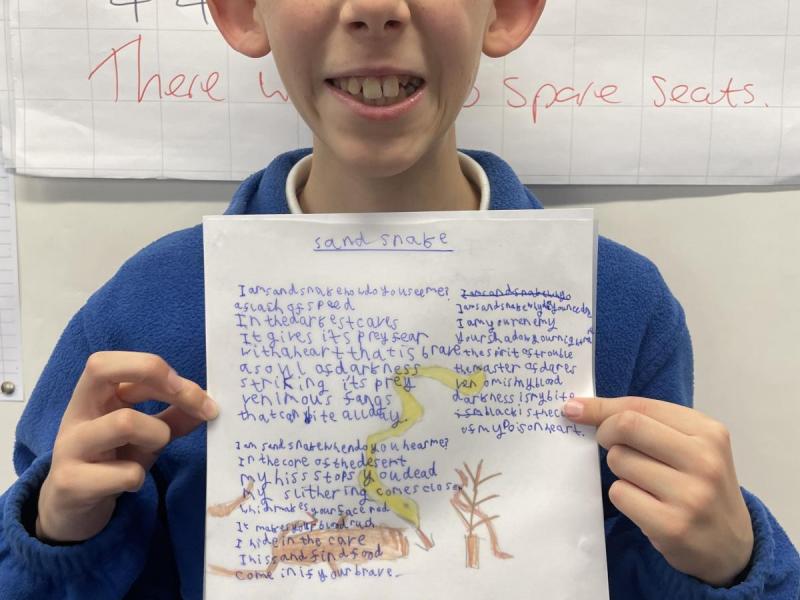 There w o spare seats.
sand snake
I am sand snake how do you see me?
a slash of speed
In the darkest caves
It gives its prey fear
with a heart that is brave
a soul of darkness
striking its prey
venimous fangs
that can bite all day.
I am sand snake when do you hear me?
In the core of the desert
my hiss stops you dead
my slithering comes closer
which makes your face red
It makes your blood rush
I hide in the cave
I hiss and find food
come in if your brave.
I am sand snake why
I am sand snake why do you need me
I am your enemy
your shadow your nightmare
the spirit of trouble
the master of dares
venom is my blood
darkness is my bite
black is the
of my poison heart.